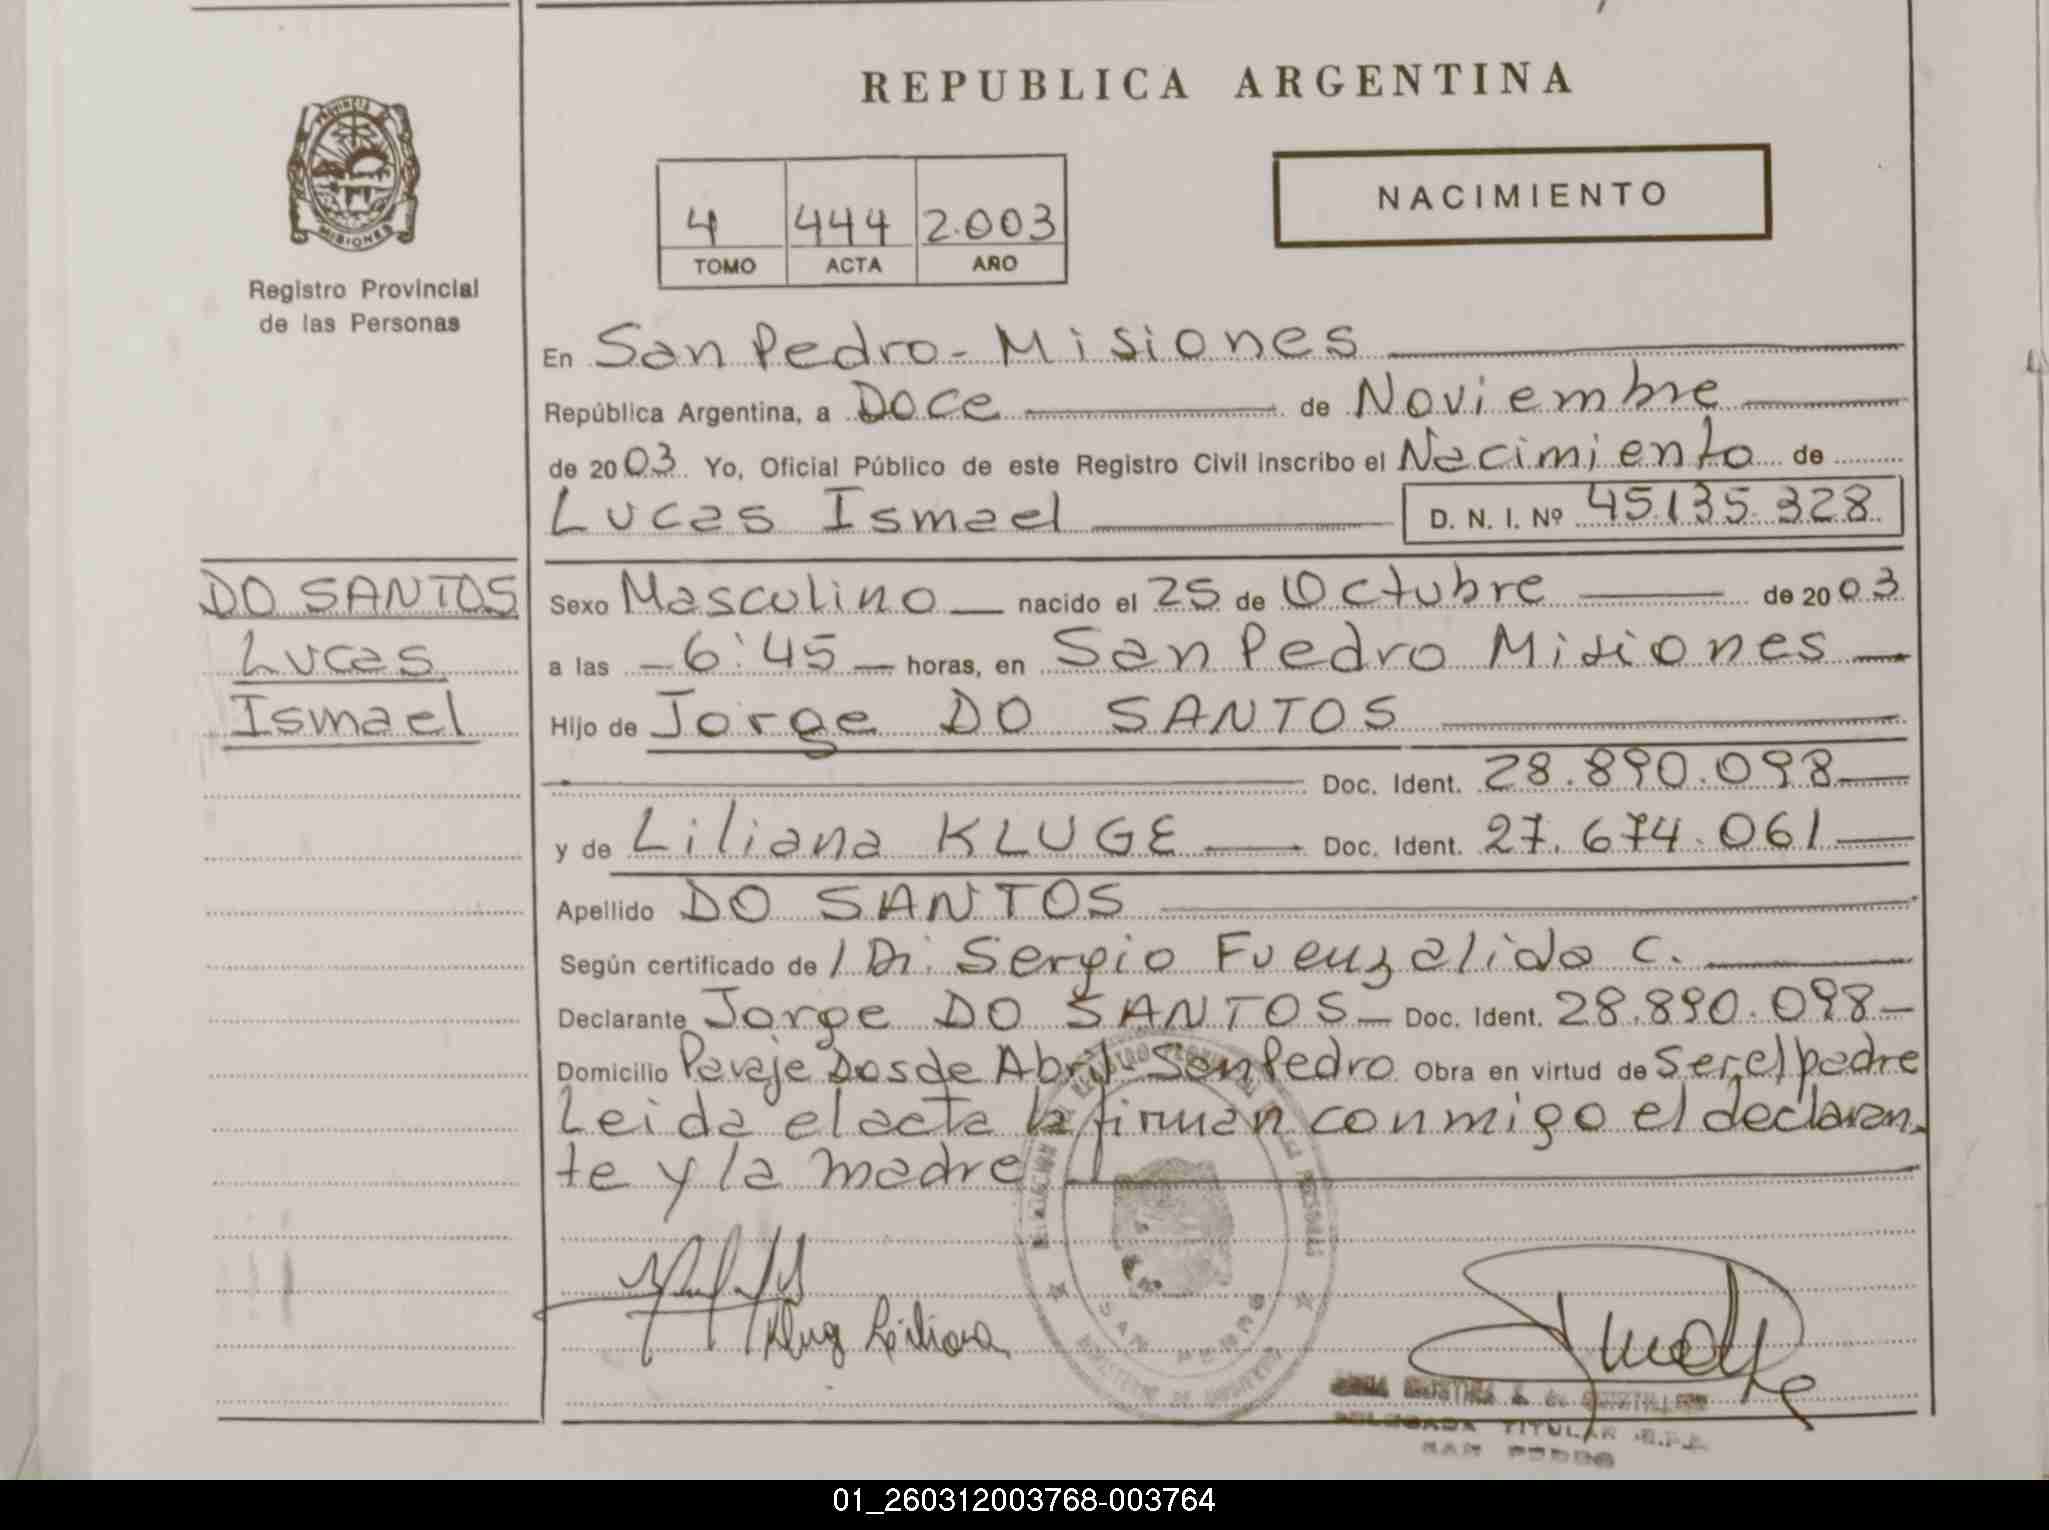 REPUBLICA ARGENTINA
PROVINCIA DE
MISIONES
Registro Provincial
de las Personas
NACIMIENTO
4 444 2.003
TOMO ACTA AÑO
En San Pedro - Misiones
República Argentina, a Doce de Noviembre
de 2003. Yo, Oficial Público de este Registro Civil inscribo el Nacimiento de
Lucas Ismael D. N. I. Nº 45.135.328
DO SANTOS
Lucas
Ismael
Sexo Masculino nacido el 25 de Octubre de 2003
a las 6:45 horas, en San Pedro Misiones
Hijo de Jorge DO SANTOS
Doc. Ident. 28.890.098
y de Liliana KLUGE Doc. Ident. 27.674.061
Apellido DO SANTOS
Según certificado de / Dr. Sergio Fuenzalida C.
Declarante Jorge DO SANTOS Doc. Ident. 28.890.098
Domicilio Paraje Dos de Abril San Pedro Obra en virtud de Ser el padre
Leida el acta la firman conmigo el declaran-
te y la madre
SAN PEDRO
MINISTERIO DE GOBIERNO
Klug Liliana
DELEGADA TITULAR R.P.P.
SAN PEDRO
01_260312003768-003764